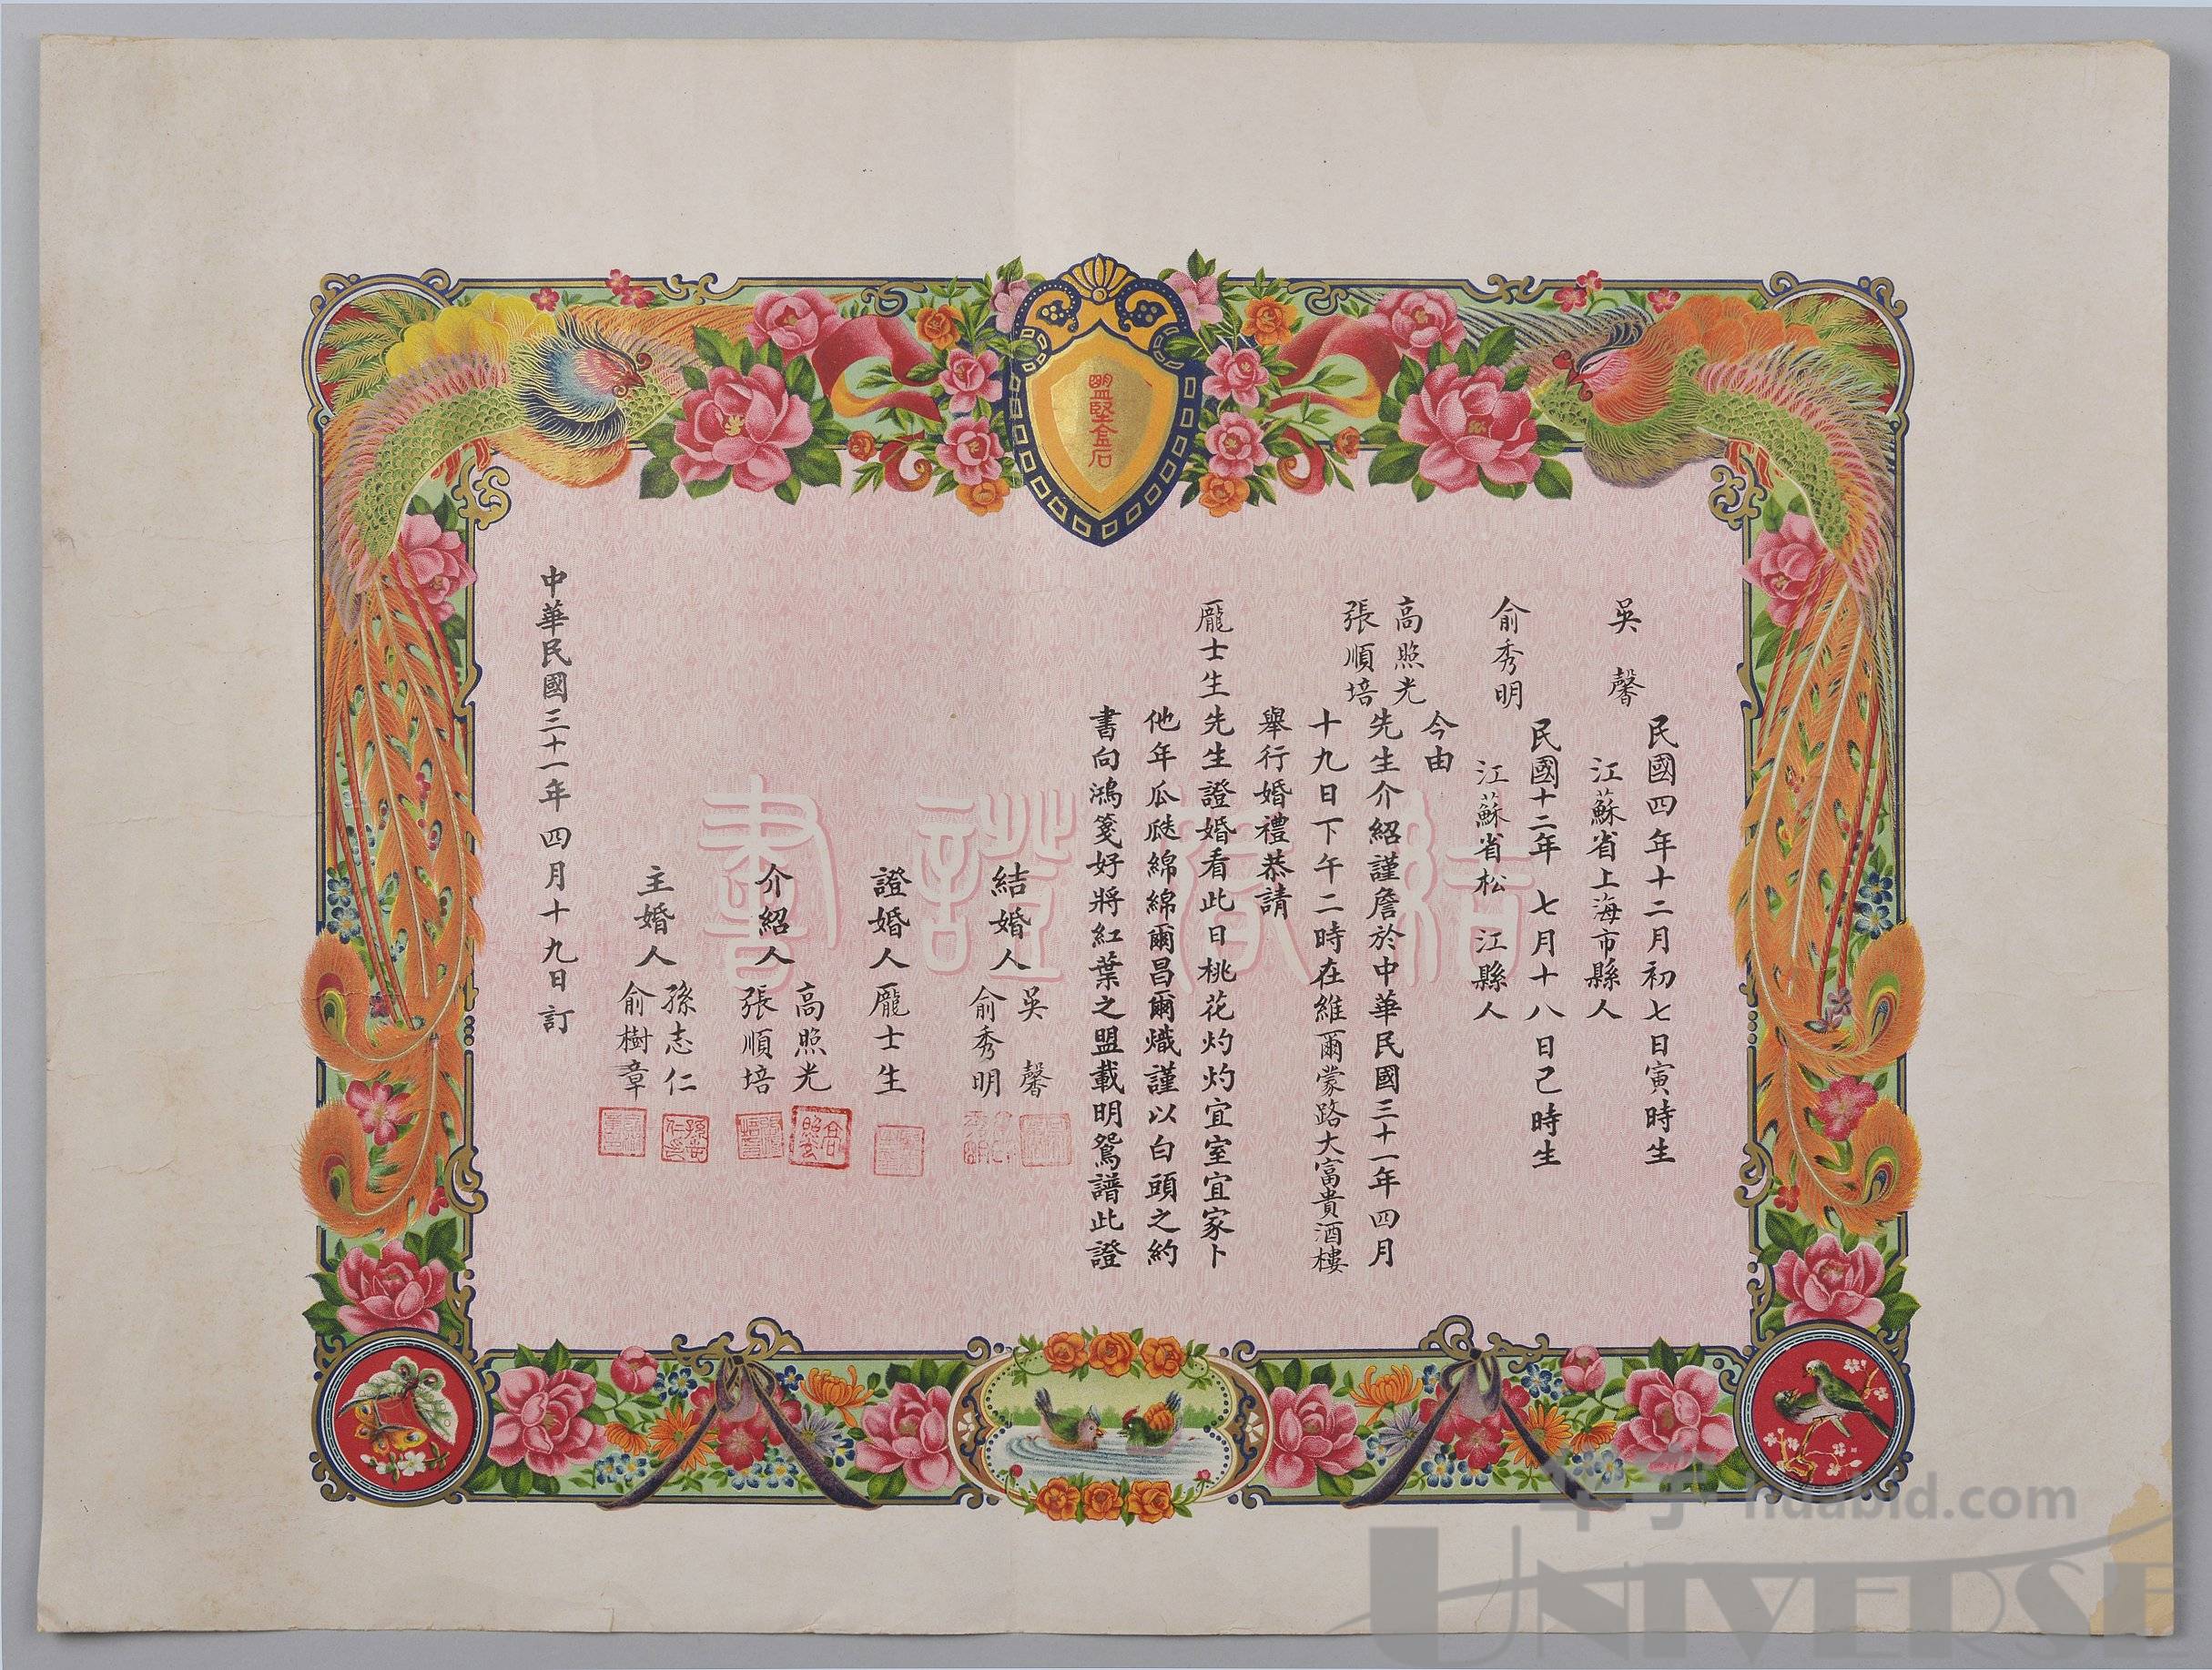 盟堅金石
結婚證書
吳 馨
民國四年十二月初七日寅時生
江蘇省上海市縣人
俞秀明
民國十二年 七月十八日己時生
江蘇省松 江縣人
今由
高照光
張順培
先生介紹謹詹於中華民國三十一年四月
十九日下午二時在維爾蒙路大富貴酒樓
舉行婚禮恭請
龎士生先生證婚看此日桃花灼灼宜室宜家卜
他年瓜瓞綿綿爾昌爾熾謹以白頭之約
書向鴻箋好將紅葉之盟載明鴛譜此證
結婚人
吳 馨
俞秀明
證婚人 龎士生
介紹人
高照光
張順培
主婚人
孫志仁
俞樹章
中華民國三十一年四月十九日訂
huabid.com
UNIVERSE